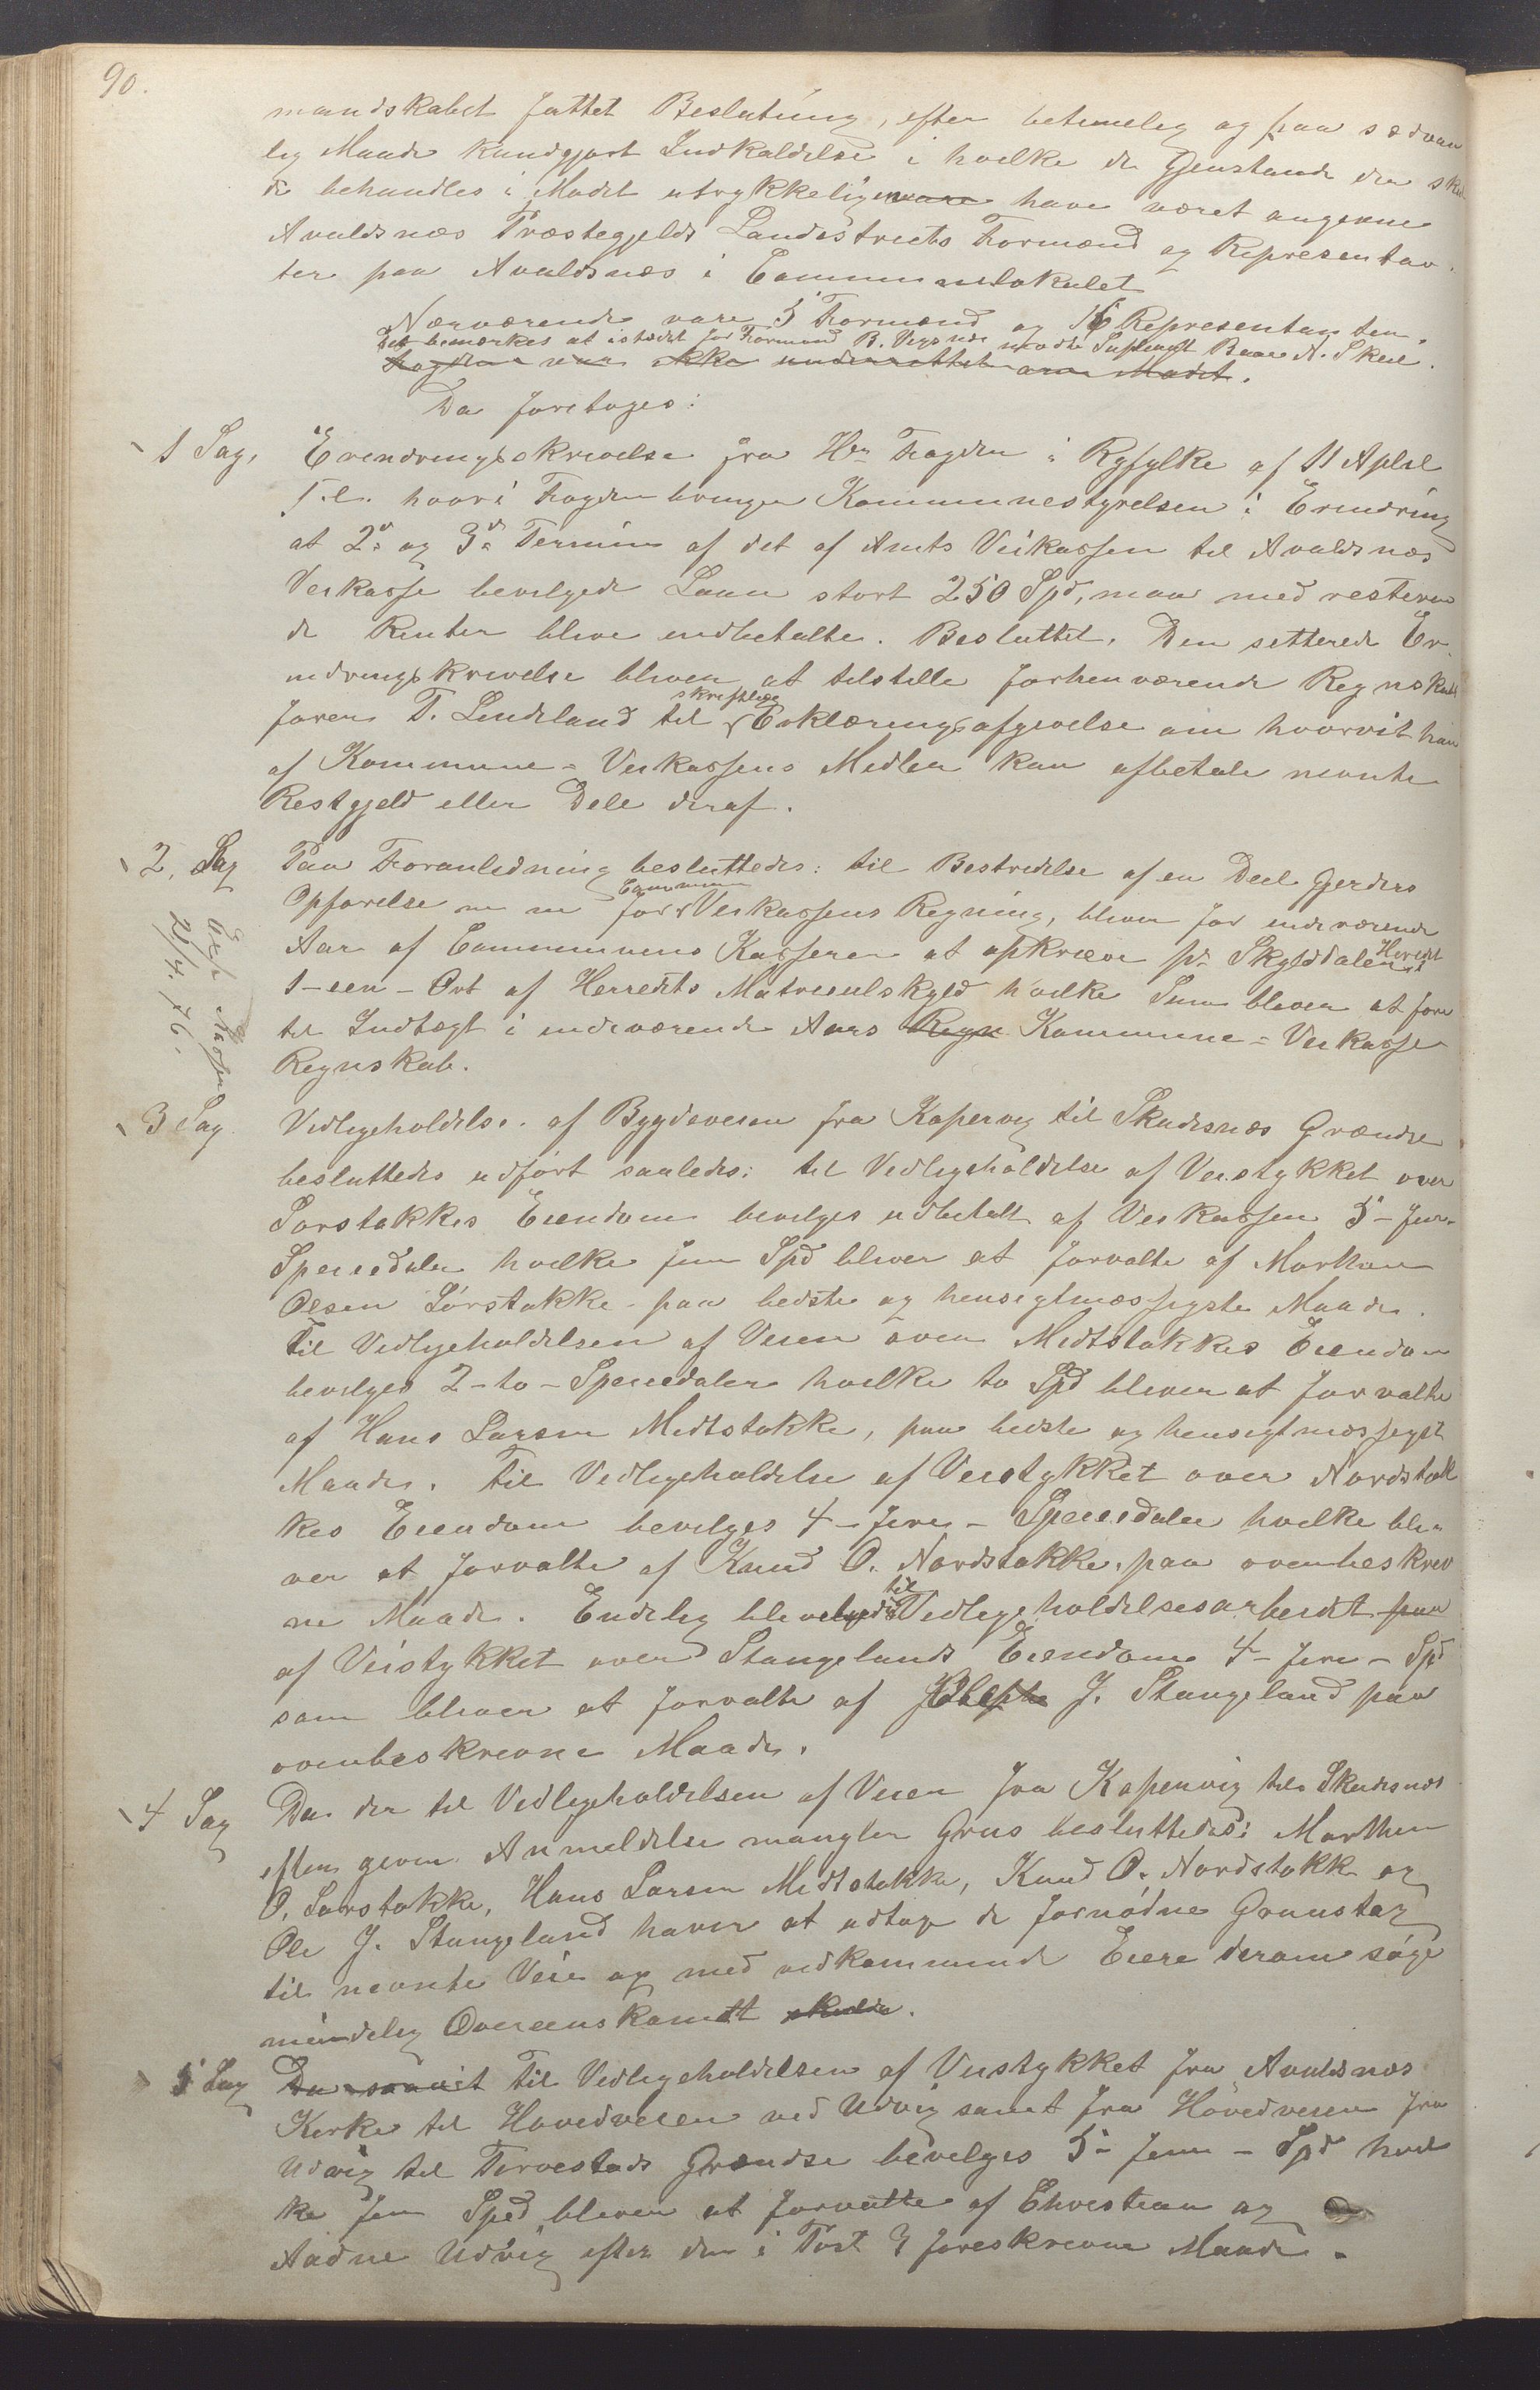 90.
mandskabet fattet Beslutning, efter betimelig og paa sædvan
lig Maade kundgjort Indkaldelse i hvilke de Gjenstande der skul
de behandles i Mødet utrykkelig have været angivne
Avaldsnæs Præstegjelds Landdistricts Formænd og Representan
ter paa Avaldsnæs i Communelokalet
Nærværende vare 5 Formænd og 16 Representanter.
Det bemærkes at istedet for Formand B. Vignæs mødte Supleant Baar A. Skeie.
Fogden var ikke underrettet om Mødet.
Da foretoges:
1 Sag, Erindringsskrivelse fra Hr Fogden i Ryfylke af 11 April
d. A. hvori Fogden bringer Kommunestyrelsen i Erindring
at 2den og 3die Termin af det af Amts Veikassen til Avaldsnæs
Veikasse bevilgede Laan stort 250 Spd, maa med resteren
de Renter blive indbetalte. Besluttet. Den sitterede Er
indringsskrivelse bliver at tilstille forhenværende Regnskabs
fører T. Lindeland til skriftlig Erklæringsafgivelse om hvorvit han
af Kommune-Veikassens Midler kan afbetale nevnte
Restgjeld eller Dele deraf.
2. Sag Paa Foranledning besluttedes: til Bestridelse af en Deel Gjerders
Opførelse m m for Commune Veikassens Regning, bliver for indeværende
Aar af Communens Kasserer at opkræve pr Skylddaler Heredet
1-een-Ort af Herredets Matriculskyld hvilke Sum bliver at føre
til Indtægt i indeværende Aars Regn Kommune-Veikasse
Regnskab.
26/4. 76.
3 Sag Vedligeholdelse af Bygdeveien fra Kopervig til Skudesnæs Grændse
besluttedes udført saaledes: til Vedligeholdelse af Veistykket over
Sørstokkes Eiendom bevilges udbetalt af Veikassen 5-fem-
Speciedaler hvilke fem Spd bliver at forvalte af Marthon
Olsen Sørstokke paa bedste og hensigtmæssigste Maade.
Til Vedligeholdelsen af Veien over Midtstokkes Eiendom
bevilges 2-to-Speciedaler hvilke to Spd bliver at forvalte
af Hans Larsen Midtstokke, paa bedste og hensigtmæssigst
Maade. Til Vedligeholdelse af Veistykket over Nordstok
kes Eiendom bevilges 4-fire-Speciedaler hvilke bli-
ver at forvalte af Knud O. Nordstokke, paa ovenbeskrev
ne Maade. Endelig til Vedligeholdelsesarbeidet paa
af Veistykket over Stangelands Eiendom 4-fire-Spd
som bliver at forvalte af J. Stangeland paa
ovenbeskrevne Maade.
4 Sag Da der til Vedligeholdelsen af Veien fra Kopervig til Skudesnæs
efter given Anmeldelse mangler Grus besluttedes: Marthon
O. Sørstokke, Hans Larsen Midtstokke, Knud O. Nordstokke og
Ole J. Stangeland haver at udtage de fornødne Gruustag
til nevnte Veie og med vedkommende Eiere derom søge
mindelig Overeenskomst skulde.
5 Sag Da saavit Til Vedligeholdelsen af Veistykket fra Avaldsnæs
Kirke til Hovedveien ved Udvig samt fra Hovedveien fra
Udvig til Tervestads Grændse bevilges 5-fem-Spd hvil
ke fem Spd bliver at forvalte af Christian og
Aadne Udvig efter den i Post 3 foreskrevne Maade.